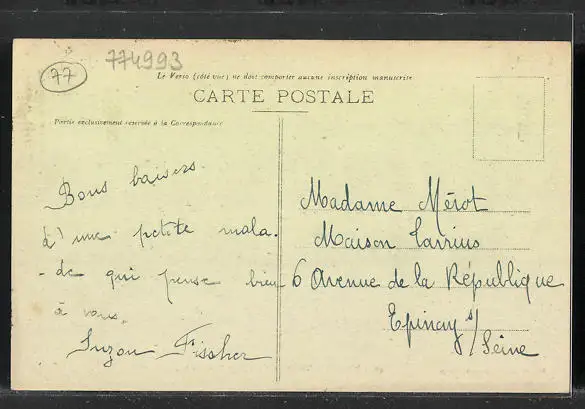 77
774993
Le Verso (côté vue) ne doit comporter aucune inscription manuscrite
CARTE POSTALE
Partie exclusivement réservée à la Correspondance
Bons baisers
d'une petite mala-
-de qui pense bien
à vous.
Suzon Fischer
Madame Mérot
Maison
6 Avenue de la République
Epinay s/
Seine